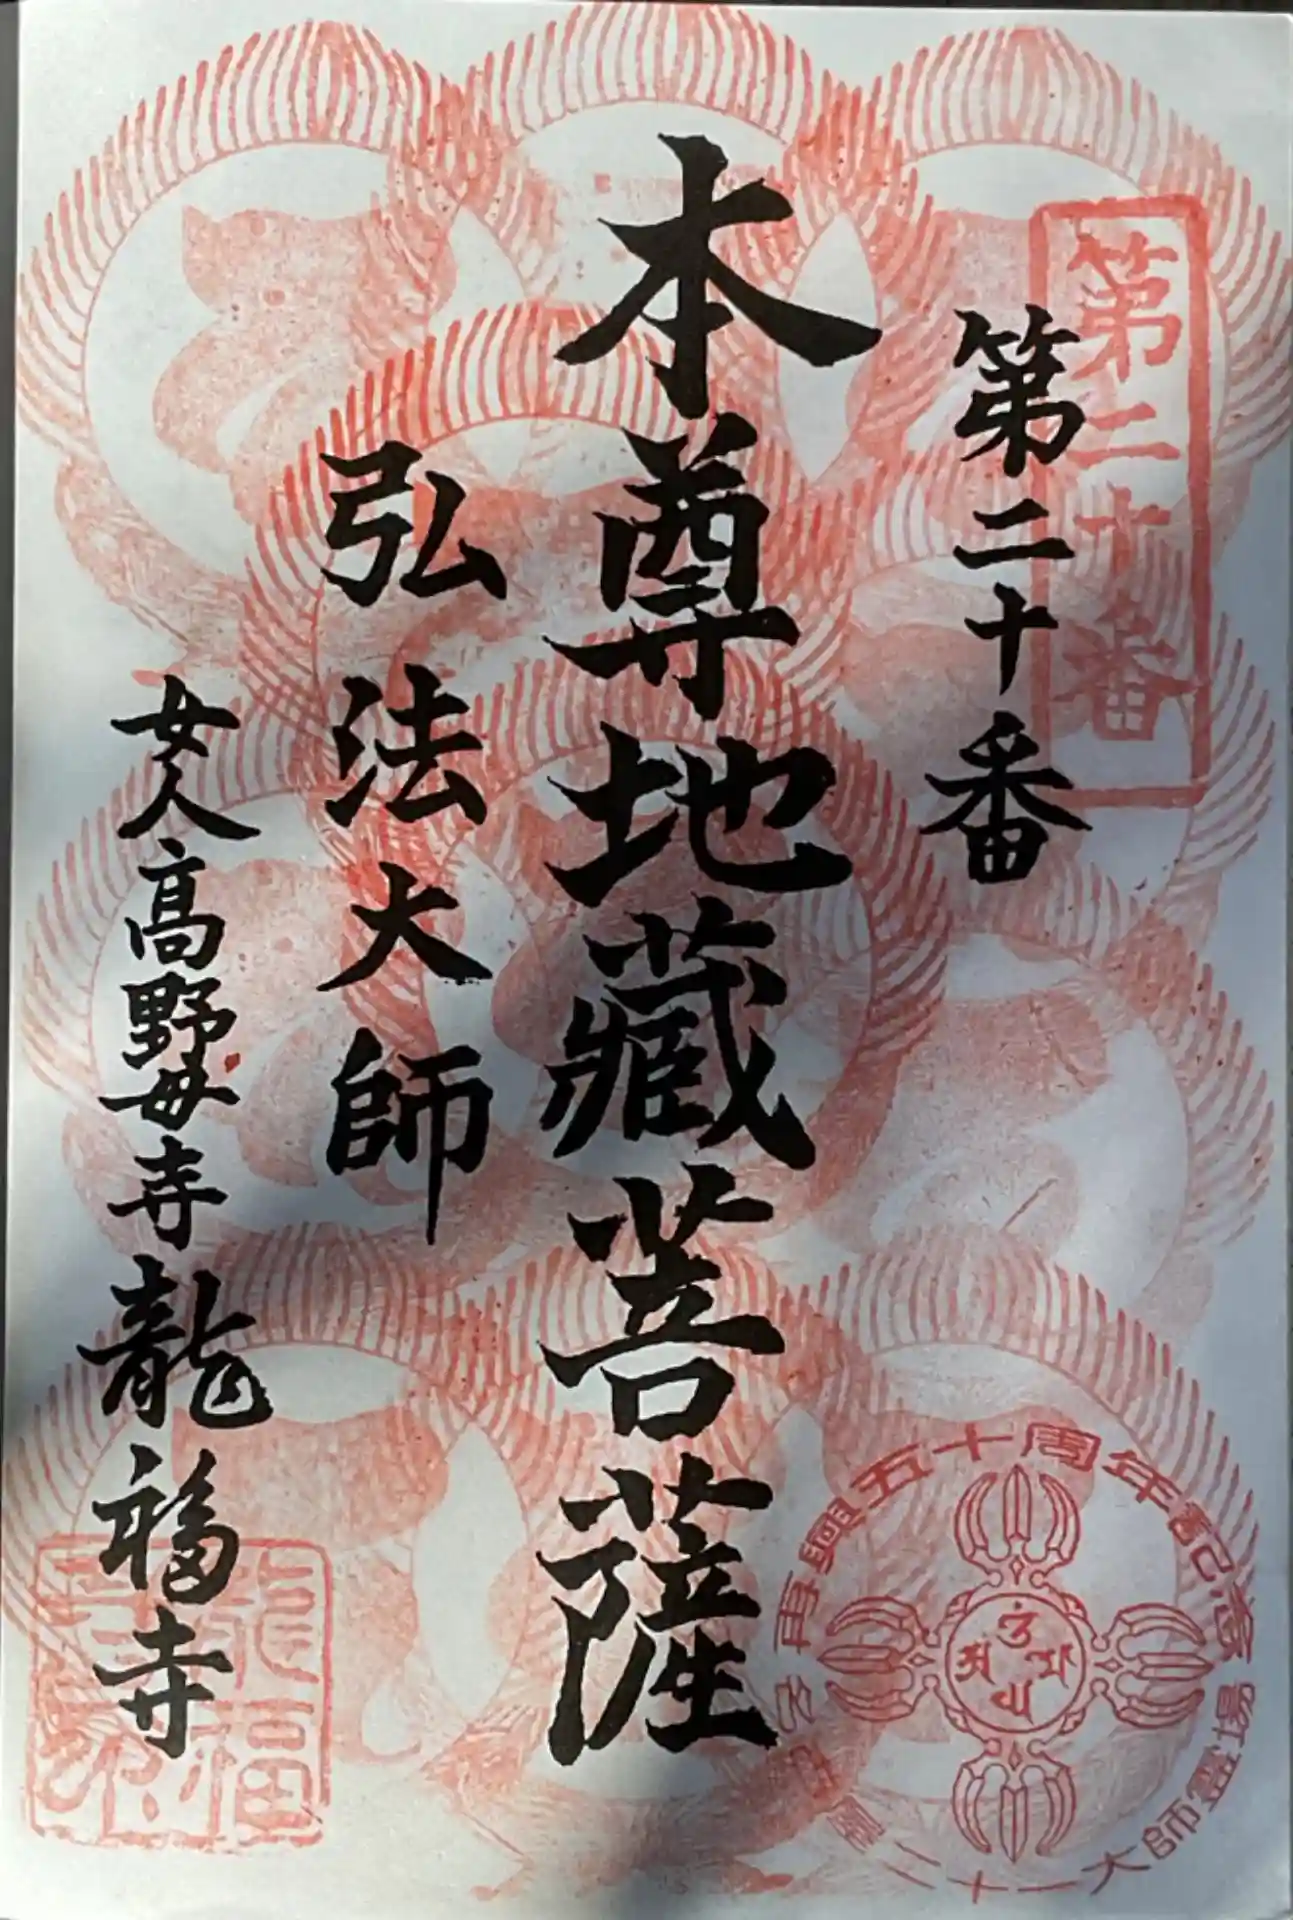 第二十番
第二十番
本尊地藏菩薩
弘法大師
女人高野母寺龍福寺
再興五十周年記念
二十一大師靈場
龍福
寺印